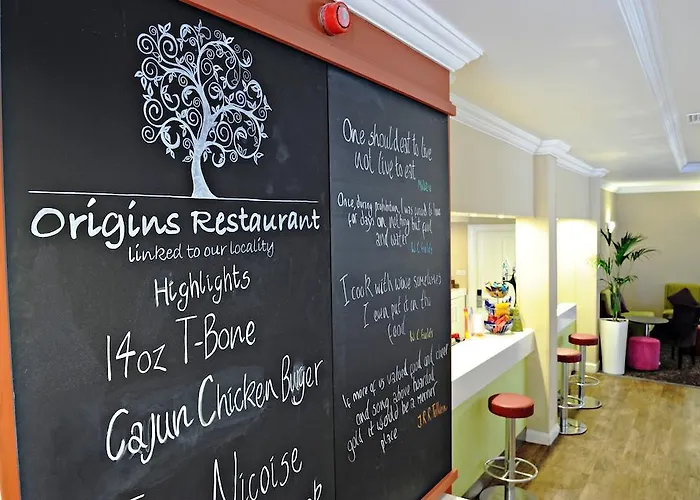 Origins Restaurant
linked to our locality
Highlights
14oz T-Bone
Cajun Chicken Burger
Nicoise
One should eat to live
not live to eat
Moliere
Once, during prohibition, I was forced to live
for days on nothing but food
and water
W.C. Fields
I cook with wine sometimes
I even put it in the
food
W.C. Fields
If more of us valued food and cheer
and song above hoarded
gold it would be a merrier
place
J.R.R. Tolkien